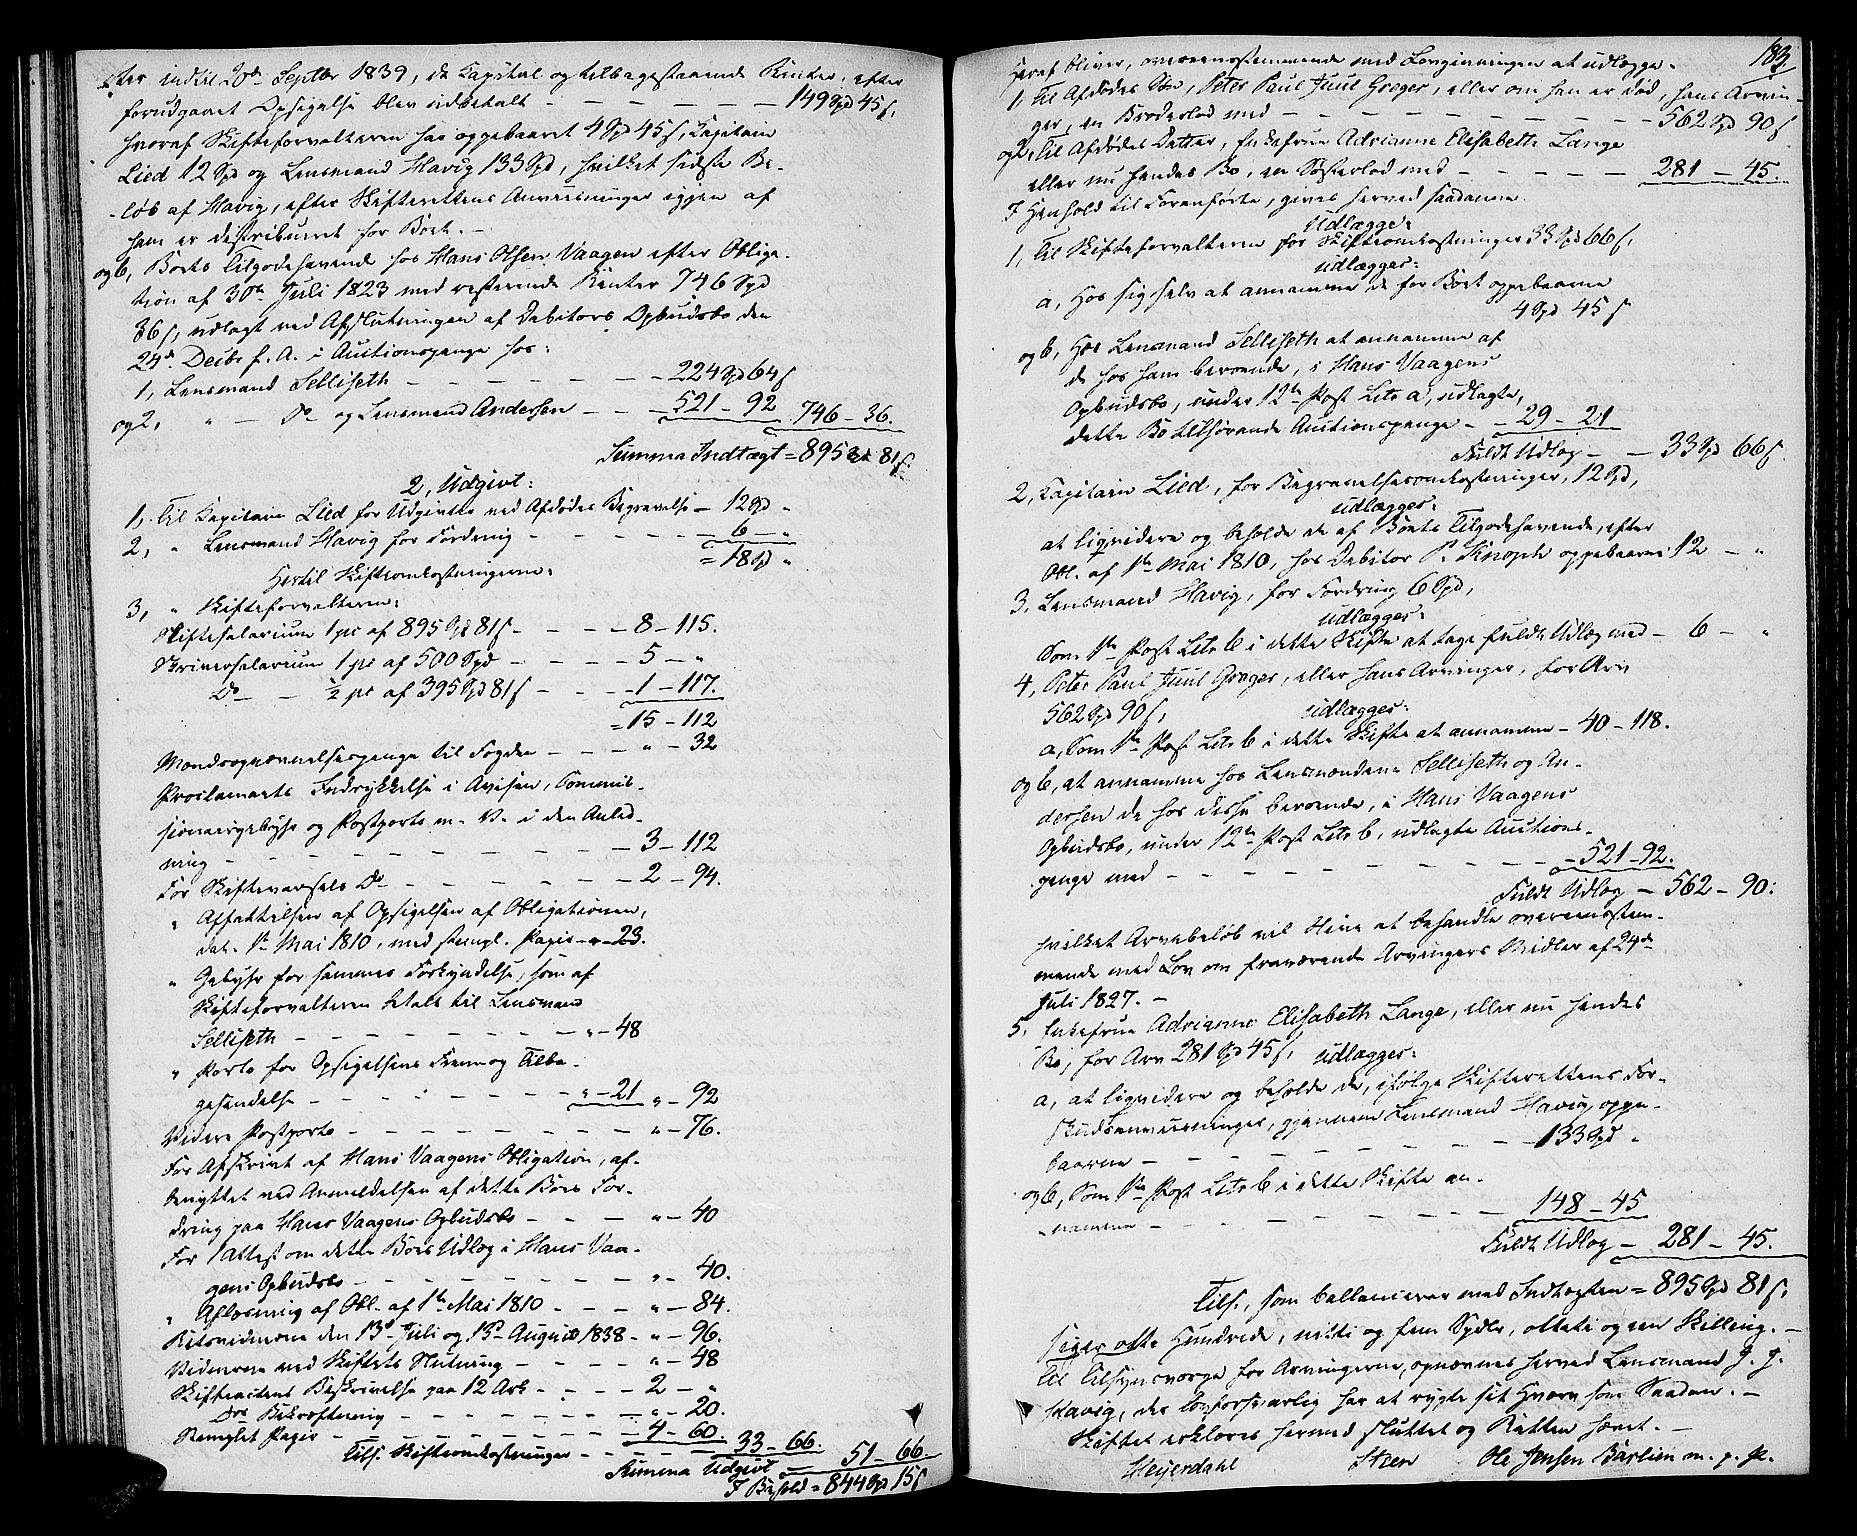 ter indtil 20de Septbr 1839, da Kapital og tilbagestaaende Renter, efter
forudgaaet Opsigelse blev udbetalt — — — — — — 149 Spd 45 s,
hvoraf Skifteforvalteren har oppebaaret 4 Spd 45 s, Kapitain
Lied 12 Spd og Lensmand Havig 133 Spd, hvilket sidste Be-
-løb af Havig, efter Skifterettens Anviisninger igjen af
ham er distribueret for Boet. —
og b, Boets Tilgodehavende hos Hans Olsen Vaagen efter Obliga-
tion af 30te Juli 1823 med resterende Renter 746 Spd
36 s, udlagt ved Afslutningen af Debitors Opbudsbo den
24de Decbr f. A. i Auctionspenge hos:
1, Lensmand Selliseth — — — — — — 224 Spd 64 s
og 2, " — Do og Lensmand Andersen — — 521 — 92 746 — 36.
Summa Indtægt = 895 Spd 81 s.
2, Udgivt:
1, Til Kapitain Lied for Udgivter ved Afdødes Begravelse — 12 Spd "
2, " Lensmand Havig for Fordring — — — — — 6 — "
= 18 Spd "
Hertil Skifteomkostningerne:
3, " Skifteforvalteren:
Skiftesalarium 1 pc af 895 Spd 81 s — — — 8 — 115.
Skriversalarium 1 pc af 500 Spd — — — 5 — "
Do — — ½ pc af 395 Spd 81 s — — — 1 — 117.
= 15 — 112
Mandsopnævnelsespenge til Fogden — — — " — 32
Proclamaets Indrykkelse i Avisen, Commis-
sionairgebyhr og Postporto m. V. i den Anled-
ning — — — — — — — — 3 — 112
For Skiftevarsels Do — — — — — — 2 — 94.
" Affattelsen af Opsigelsen af Obligationen,
dat. 1te Mai 1810, med stempl. Papir — " — 23.
" Gebyhr for sammes Forkyndelse, som af
Skifteforvalteren betalt til Lensmand
Selliseth — — — — — — — " — 48
" Porto for Opsigelsens Frem og Tilba-
gesendelse — — — — — — " — 21 " — 92
Videre Postporto — — — — — — — " — 76.
For Afskrivt af Hans Vaagens Obligation, af-
benyttet ved Anmeldelsen af dette Boes For-
dring paa Hans Vaagens Opbudsbo — — — " — 40
For 1 Attest om dette Boes Udlæg i Hans Vaa-
gens Opbudsbo — — — — — — — " — 40.
" Aflysning af Obl. af 1te Mai 1810 — — — " — 84.
Retsvidnerne den 13de Juli og 15de August 1838 — " — 96.
Vidnerne ved Skiftets Slutning — — — — " — 48
Skifteactens Beskrivelse paa 12 Ark — — — 2 — "
Dos Bekræftning — — — — — " — 20.
Stemplet Papir — — — — — — — 4 — 60.
Tils. Skifteomkostninger — — — — 33 — 66. 51 — 66.
Summa Udgivt
I Behold = 844 Spd 15 s
183
Heraf bliver, overeensstemmende med Lovgivningen at udlægge.
1, Til Afdødes Søn, Peter Paul Juul Greger, eller om han er død, hans Arvin-
ger, en Broderlod med — — — — — — — — 562 Spd 90 s
og 2, Til Afdødes Datter, Enkefrue Adrianne Elisabeth Lange
eller nu hendes Bo, en Søsterlod med — — — — — 281 — 45.
I Henhold til Foranførte, gives herved saadanne
Udlægge:
1, Til Skifteforvalteren for Skifteomkostninger 33 Spd 66 s,
udlægges:
a, Hos sig selv at annamme de for Boet oppebaarne
4 Spd 45 s
og b, Hos Lensmand Selliseth at annamme af
de hos ham beroende, i Hans Vaagens
Opbudsbo, under 12te Post Litr a, udlagte,
dette Bo tilhørende Auctionspenge — — 29 — 21
Fuldt Udlæg — — 33 Spd 66 s.
2, Kapitain Lied, for Begravelsesomkostninger, 12 Spd,
udlægges:
at liqvidere og beholde de af Boets Tilgodehavende, efter
Obl. af 1te Mai 1810, hos Debitor P. Knoph oppebaarne 12 — "
3, Lensmand Havig, for Fordring 6 Spd,
udlægges:
Som 1te Post Litr b i dette Skifte at tage fuldt Udlæg med — 6 — "
4, Peter Paul Juul Greger, eller hans Arvinger, for Arv
562 Spd 90 s, udlægges:
a, Som 1te Post Litr b i dette Skifte at annamme — 40 — 118.
og b, at annamme hos Lensmændene Selliseth og An-
dersen de hos disse beroende, i Hans Vaagens
Opbudsbo, under 12te Post Litr b, udlagte Auctions-
penge med — — — — — — — — 521 — 92.
Fuldt Udlæg — 562 — 90.
hvilket Arvebeløb vil blive at behandle overeensstem-
mende med Lov om fraværende Arvingers Midler af 24de
Juli 1827. —
5, Enkefrue Adrianne Elisabeth Lange, eller nu hendes
Bo, for Arv 281 Spd 45 s, udlægges:
a, at liqvidere og beholde de, ifølge Skifterettens For-
skudsanviisninger, gjennem Lensmand Havig oppe-
baarne — — — — — — — — — 133 Spd "
og b, Som 1te Post Litr b i dette Skifte an-
namme — — — — — — — — 148 — 45
Fuldt Udlæg — 281 — 45.
Tils., som ballancerer med Indtægten = 895 Spd 81 s,
siger otte Hundrede, nitti og fem Spdlr, otteti og een Skilling. —
Til Tilsynsværge for Arvingerne, opnævnes herved Lensmand J. J.
Havig, der lovforsvarlig har at rygte sit Hverv som Saadan. —
Skiftet erklæres hermed sluttet og Retten hævet. —
Heyerdahl Steen Ole Jensen Barlien m. p. P.